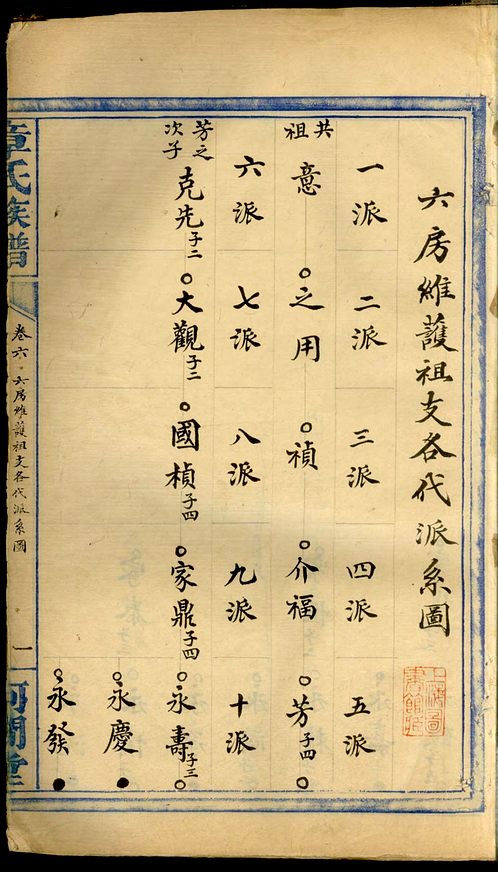 六房維護祖支各代派系圖
一派 二派 三派 四派 五派
共祖 意 之用 禎 介福 芳子四
六派 七派 八派 九派 十派
芳之次子 克先子二 大觀子二 國楨子四 家鼎子四 永壽子三
永慶
永發
章氏族譜 卷六 六房維護祖支各代派系圖 一 河間堂
上海圖書館藏